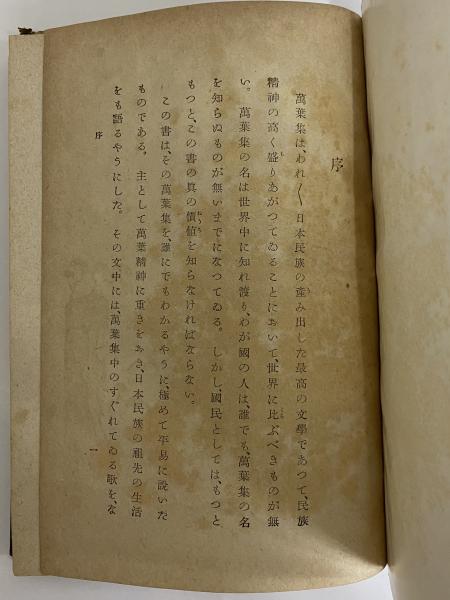 序
萬葉集は、われ〱日本民族の産み出した最高の文學であつて、民族
精神の高く盛りあがつてゐることにおいて、世界に比ぶべきものが無
い。萬葉集の名は世界中に知れ渡り、わが國の人は、誰でも、萬葉集の名
を知らぬものが無いまでになつてゐる。しかし、國民としては、もつと
もつと、この書の眞の價値を知らなければならない。
この書は、その萬葉集を、誰にでもわかるやうに、極めて平易に説いた
ものである。主として萬葉精神に重きをおき、日本民族の祖先の生活
をも語るやうにした。その文中には、萬葉集中のすぐれてゐる歌を、な
序
一